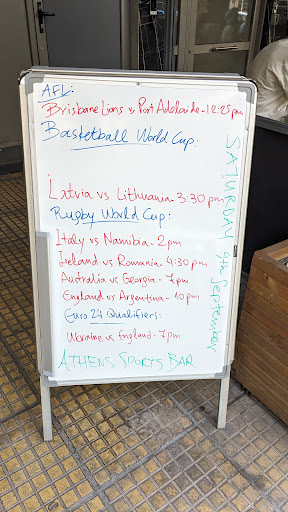 AFL:
Brisbane Lions v Port Adelaide - 12:25pm
Basketball World Cup:
Latvia vs Lithuania - 3:30pm
Rugby World Cup:
Italy vs Namibia - 2pm
Ireland vs Romania - 4:30pm
Australia vs Georgia - 7pm
England vs Argentina - 10pm
Euro 24 Qualifiers:
Ukraine vs England - 7pm
ATHENS SPORTS BAR
SATURDAY 9th September